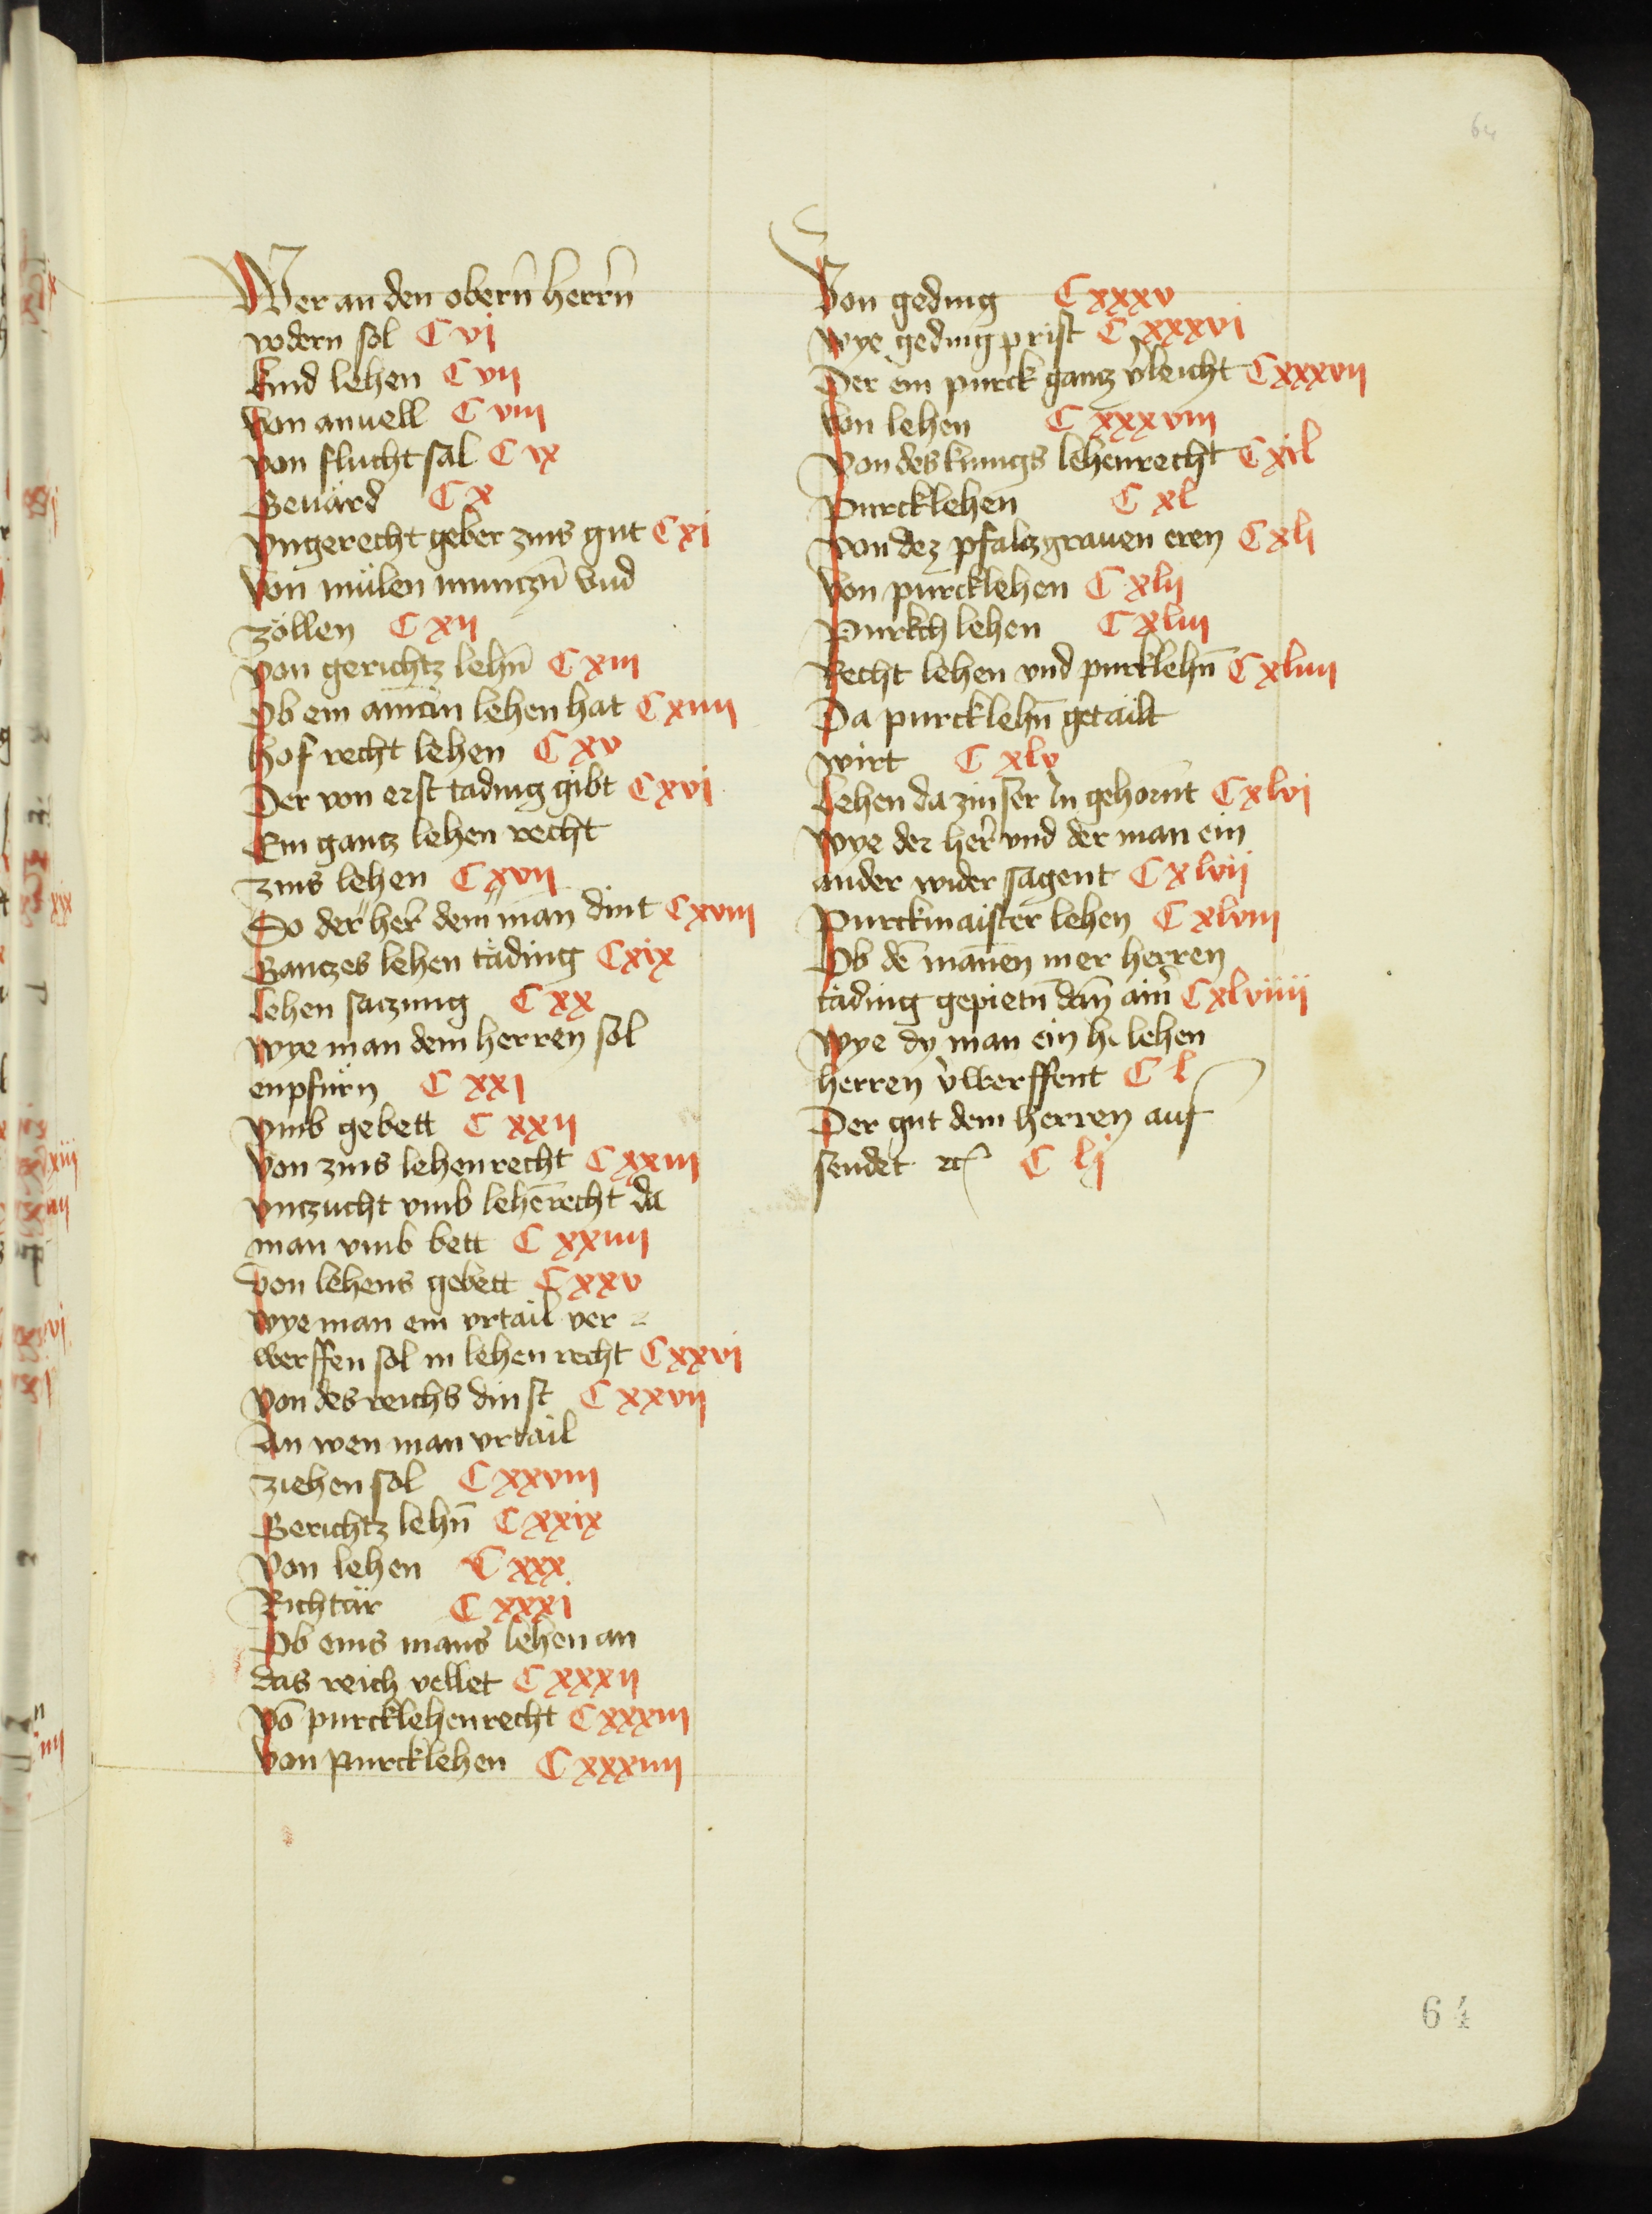 64
Wer an den obern̄ herrn̄
vodern sol C vj
kind lehen C vij
von anuell C viij
von flucht sal C ix
Geuärd C x
vngerecht geber zins gut C xj
von mülen munczn̄ vnd
zöllen C xij
von gerichtz lehn̄ C xiij
Ob ein amān lehen hat C xiiij
hof recht lehen C xv
Der von erst tading gibt C xvj
Ein gantz lehen recht
zins lehen C xvij
So der her dem man dint C xviij
Ganczes lehen täding C xix
lehen saczung C xx
wye man dem herren sol
enpfürn C xxj
vmb gebett C xxij
von zins lehenrecht C xxiij
vnczucht vmb lehērecht da
man vmb bett C xxiiij
von lehens gebett C xxv
wye man ein vrtail ver
werffen sol in lehen recht C xxvj
von des reichs dinst C xxvij
An wen man vrtail
ziehen sol C xxviij
Gerichtz lehn̄ C xxix
von lehen C xxx
Richtär C xxxj
Ob eins mans lehen an
das reich vellet C xxxij
Vō purcklehenrecht C xxxiij
Von purcklehen C xxxiiij
Von geding C xxxv
wye geding prist C xxxvj
Der ein purck gantz v̓leicht C xxxvij
von lehen C xxxviij
von des kunigs lehenrecht C xil
Purcklehen C xl
von dez pfalczgrauen eren C xlj
von purcklehen C xlij
Purkch lehen C xliij
Recht lehen vnd purklehn̄ C xliiij
Da purcklehn̄ getailt
wirt C xlv
lehen da zinser In gehornt C xlvj
wye der her vnd der man ein
ander wider sagent C xlvij
Purckmaister lehen C xlviij
Ob dē mannen mer herren
täding gepietn̄ dan̄ ain̓ C xlviiij
wye dy man ein h. lehen
herren v̓werffent C l
Der gut dem herren auf
sendet ꝛc C lj
64